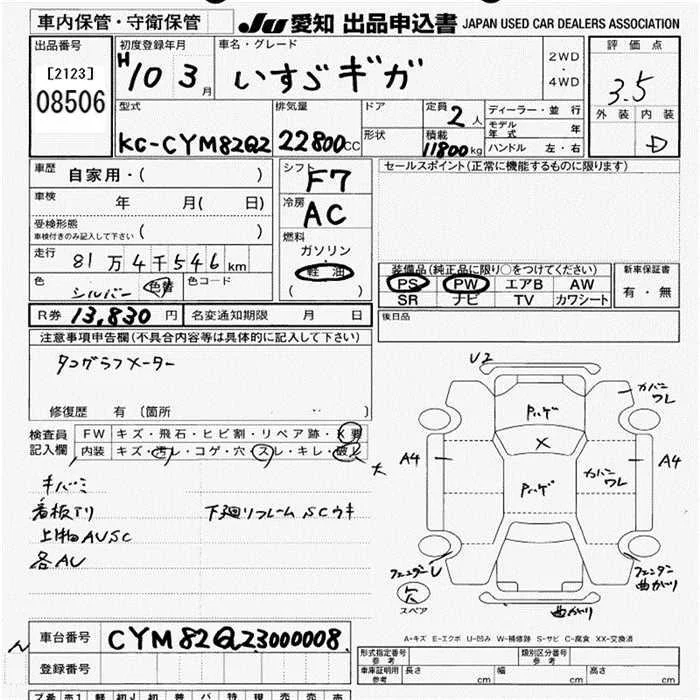 車内保管・守衛保管
JU 愛知 出品申込書 JAPAN USED CAR DEALERS ASSOCIATION
出品番号 初度登録年月 車名・グレード 2WD・4WD 評価点
[2123] H10 3月 いすゞギガ 3.5
08506 外装 内装
型式 排気量 ドア 定員 2人 ディーラー・並行 D
モデル年式 年
KC-CYM82Q2 22800CC 形状 積載 11800kg ハンドル 左・右
車歴 自家用・( ) シフト F7 セールスポイント(正常に機能するものに限ります)
車検 年 月( 日) 冷房 AC
受検形態
車検付きのみ記入して下さい ( ) 燃料
ガソリン・
走行 81万4千546km 軽油
( )
色 シルバー 色替 色コード
装備品(純正品に限り○をつけてください) 新車保証書
PS PW エアB AW 有・無
SR ナビ TV カワシート
R券 13,830円 名変通知期限 月 日 後日品
注意事項申告欄(不具合内容等は具体的に記入して下さい)
タコグラフメーター
修復歴 有 (箇所 )
検査員 FW キズ・飛石・ヒビ割・リペア跡・X要
記入欄 内装 キズ・汚レ・コゲ・穴・スレ・キレ・破レ 大
キバミ
看板アリ 下廻リフレームSCウキ
上物AUSC
各AU
U2
カバンワレ
Pハゲ
X
A4 A4
カバンワレ
Pハゲ
フェンダーU フェンダー曲がり
欠
スペア 曲がり
A-キズ E-エクボ U-凹み W-補修跡 S-サビ C-腐食 XX-交換済
車台番号 CYM82Q23000008
登録番号
形式指定番号 参考 類別区分番号 参考
車庫証明用 参考 長さ cm 幅 cm 高さ cm